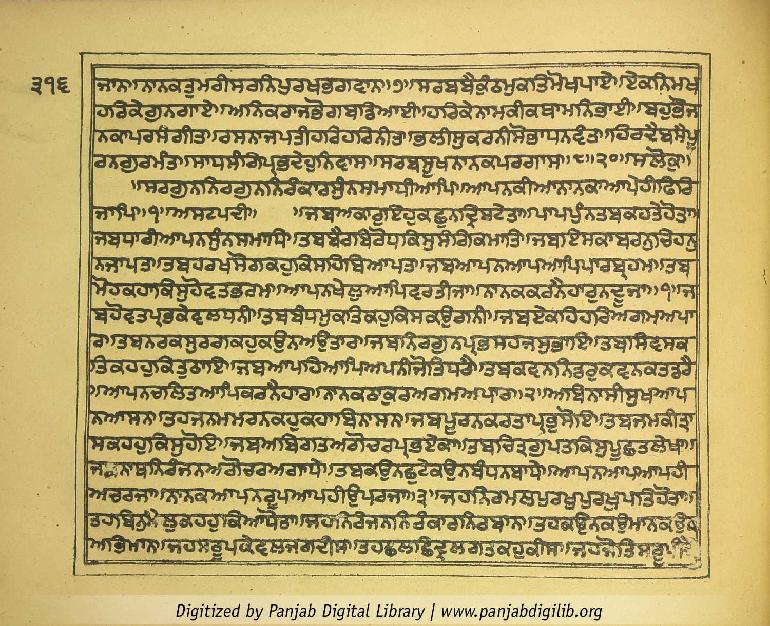 ੩੧੬
ਜਾਨ॥ਨਾਨਕਤੁਮਰੀਸਰਨਿਪੁਰਖਭਗਵਾਨ॥੭॥ਸਰਬਬੈਕੁੰਠਮੁਕਤਿਮੋਖਪਾਏ॥ਏਕਨਿਮਖ
ਹਰਿਕੇਗੁਨਗਾਏ॥ਅਨਿਕਰਾਜਭੋਗਬਡਿਆਈ॥ਹਰਿਕੇਨਾਮਕੀਕਥਾਮਨਿਭਾਈ॥ਬਹੁਭੋਜ
ਨਕਾਪਰਸੰਗੀਤ॥ਰਸਨਾਜਪਤੀਹਰਿਹਰਿਨੀਤ॥ਭਲੀਸੁਕਰਨੀਸੋਭਾਧਨਵੰਤ॥ਹਿਰਦੈਬਸੇਪੂ
ਰਨਗੁਰਮੰਤ॥ਸਾਧਸੰਗਿਪ੍ਰਭਦੇਹੁਨਿਵਾਸ॥ਸਰਬਸੂਖਨਾਨਕਪਰਗਾਸ॥੮॥੨੦॥ਸਲੋਕੁ॥
॥ਸਰਗੁਨਨਿਰਗੁਨਨਿਰੰਕਾਰਸੁੰਨਸਮਾਧੀਆਪਿ॥ਆਪਨਕੀਆਨਾਨਕਾਆਪੇਹੀਫਿਰਿ
ਜਾਪਿ॥੧॥ਅਸਟਪਦੀ॥ ॥ਜਬਅਕਾਰੁਇਹੁਕਛੁਨਦ੍ਰਿਸਟੇਤਾ॥ਪਾਪਪੁੰਨਤਬਕਹਤੇਹੋਤਾ॥
ਜਬਧਾਰੀਆਪਨਸੁੰਨਸਮਾਧਿ॥ਤਬਬੈਰਬਿਰੋਧਕਿਸੁਸੰਗਿਕਮਾਤਿ॥ਜਬਇਸਕਾਬਰਨੁਚਿਹਨੁ
ਨਜਾਪਤ॥ਤਬਹਰਖਸੋਗਕਹੁਕਿਸਹਿਬਿਆਪਤ॥ਜਬਆਪਨਆਪਆਪਿਪਾਰਬ੍ਰਹਮ॥ਤਬ
ਮੋਹਕਹਾਕਿਸੁਹੋਵਤਭਰਮ॥ਆਪਨਖੇਲੁਆਪਿਵਰਤੀਜਾ॥ਨਾਨਕਕਰਨੈਹਾਰੁਨਦੂਜਾ॥੧॥ਜ
ਬਹੋਵਤਪ੍ਰਭਕੇਵਲਧਨੀ॥ਤਬਬੰਧਮੁਕਤਿਕਹੁਕਿਸਕਉਗਨੀ॥ਜਬਏਕਹਿਹਰਿਅਗਮਅਪਾ
ਰ॥ਤਬਨਰਕਸੁਰਗਕਹੁਕਉਨਅਉਤਾਰ॥ਜਬਨਿਰਗੁਨਪ੍ਰਭਸਹਜਸੁਭਾਇ॥ਤਬਸਿਵਸਕ
ਤਿਕਹਹੁਕਿਤੁਠਾਇ॥ਜਬਆਪਹਿਆਪਿਅਪਨੀਜੋਤਿਧਰੈ॥ਤਬਕਵਨਨਿਡਰੁਕਵਨਕਤਡਰੈ
॥ਆਪਨਚਲਿਤਆਪਿਕਰਨੈਹਾਰ॥ਨਾਨਕਠਾਕੁਰਅਗਮਅਪਾਰ॥੨॥ਅਬਿਨਾਸੀਸੁਖਆਪ
ਨਆਸਨ॥ਤਹਜਨਮਮਰਨਕਹੁਕਹਾਬਿਨਾਸਨ॥ਜਬਪੂਰਨਕਰਤਾਪ੍ਰਭੁਸੋਇ॥ਤਬਜਮਕੀਤ੍ਰਾ
ਸਕਹਹੁਕਿਸੁਹੋਇ॥ਜਬਅਬਿਗਤਅਗੋਚਰਪ੍ਰਭਏਕਾ॥ਤਬਚਿਤ੍ਰਗੁਪਤਕਿਸੁਪੂਛਤਲੇਖਾ॥
ਜਬਨਾਥਨਿਰੰਜਨਅਗੋਚਰਅਗਾਧੇ॥ਤਬਕਉਨਛੁਟੇਕਉਨਬੰਧਨਬਾਧੇ॥ਆਪਨਆਪਆਪਹੀ
ਅਚਰਜਾ॥ਨਾਨਕਆਪਨਰੂਪਆਪਹੀਉਪਰਜਾ॥੩॥ਜਹਨਿਰਮਲਪੁਰਖੁਪੁਰਖਪਤਿਹੋਤਾ॥
ਤਹਬਿਨੁਮੈਲੁਕਹਹੁਕਿਆਧੋਤਾ॥ਜਹਨਿਰੰਜਨਨਿਰੰਕਾਰਨਿਰਬਾਨ॥ਤਹਕਉਨਕਉਮਾਨਕਉਨ
ਅਭਿਮਾਨ॥ਜਹਸਰੂਪਕੇਵਲਜਗਦੀਸ॥ਤਹਛਲਛਿਦ੍ਰਲਗਤਕਹੁਕੀਸ॥ਜਹਜੋਤਿਸਰੂਪੀ
Digitized by Panjab Digital Library | www.panjabdigilib.org